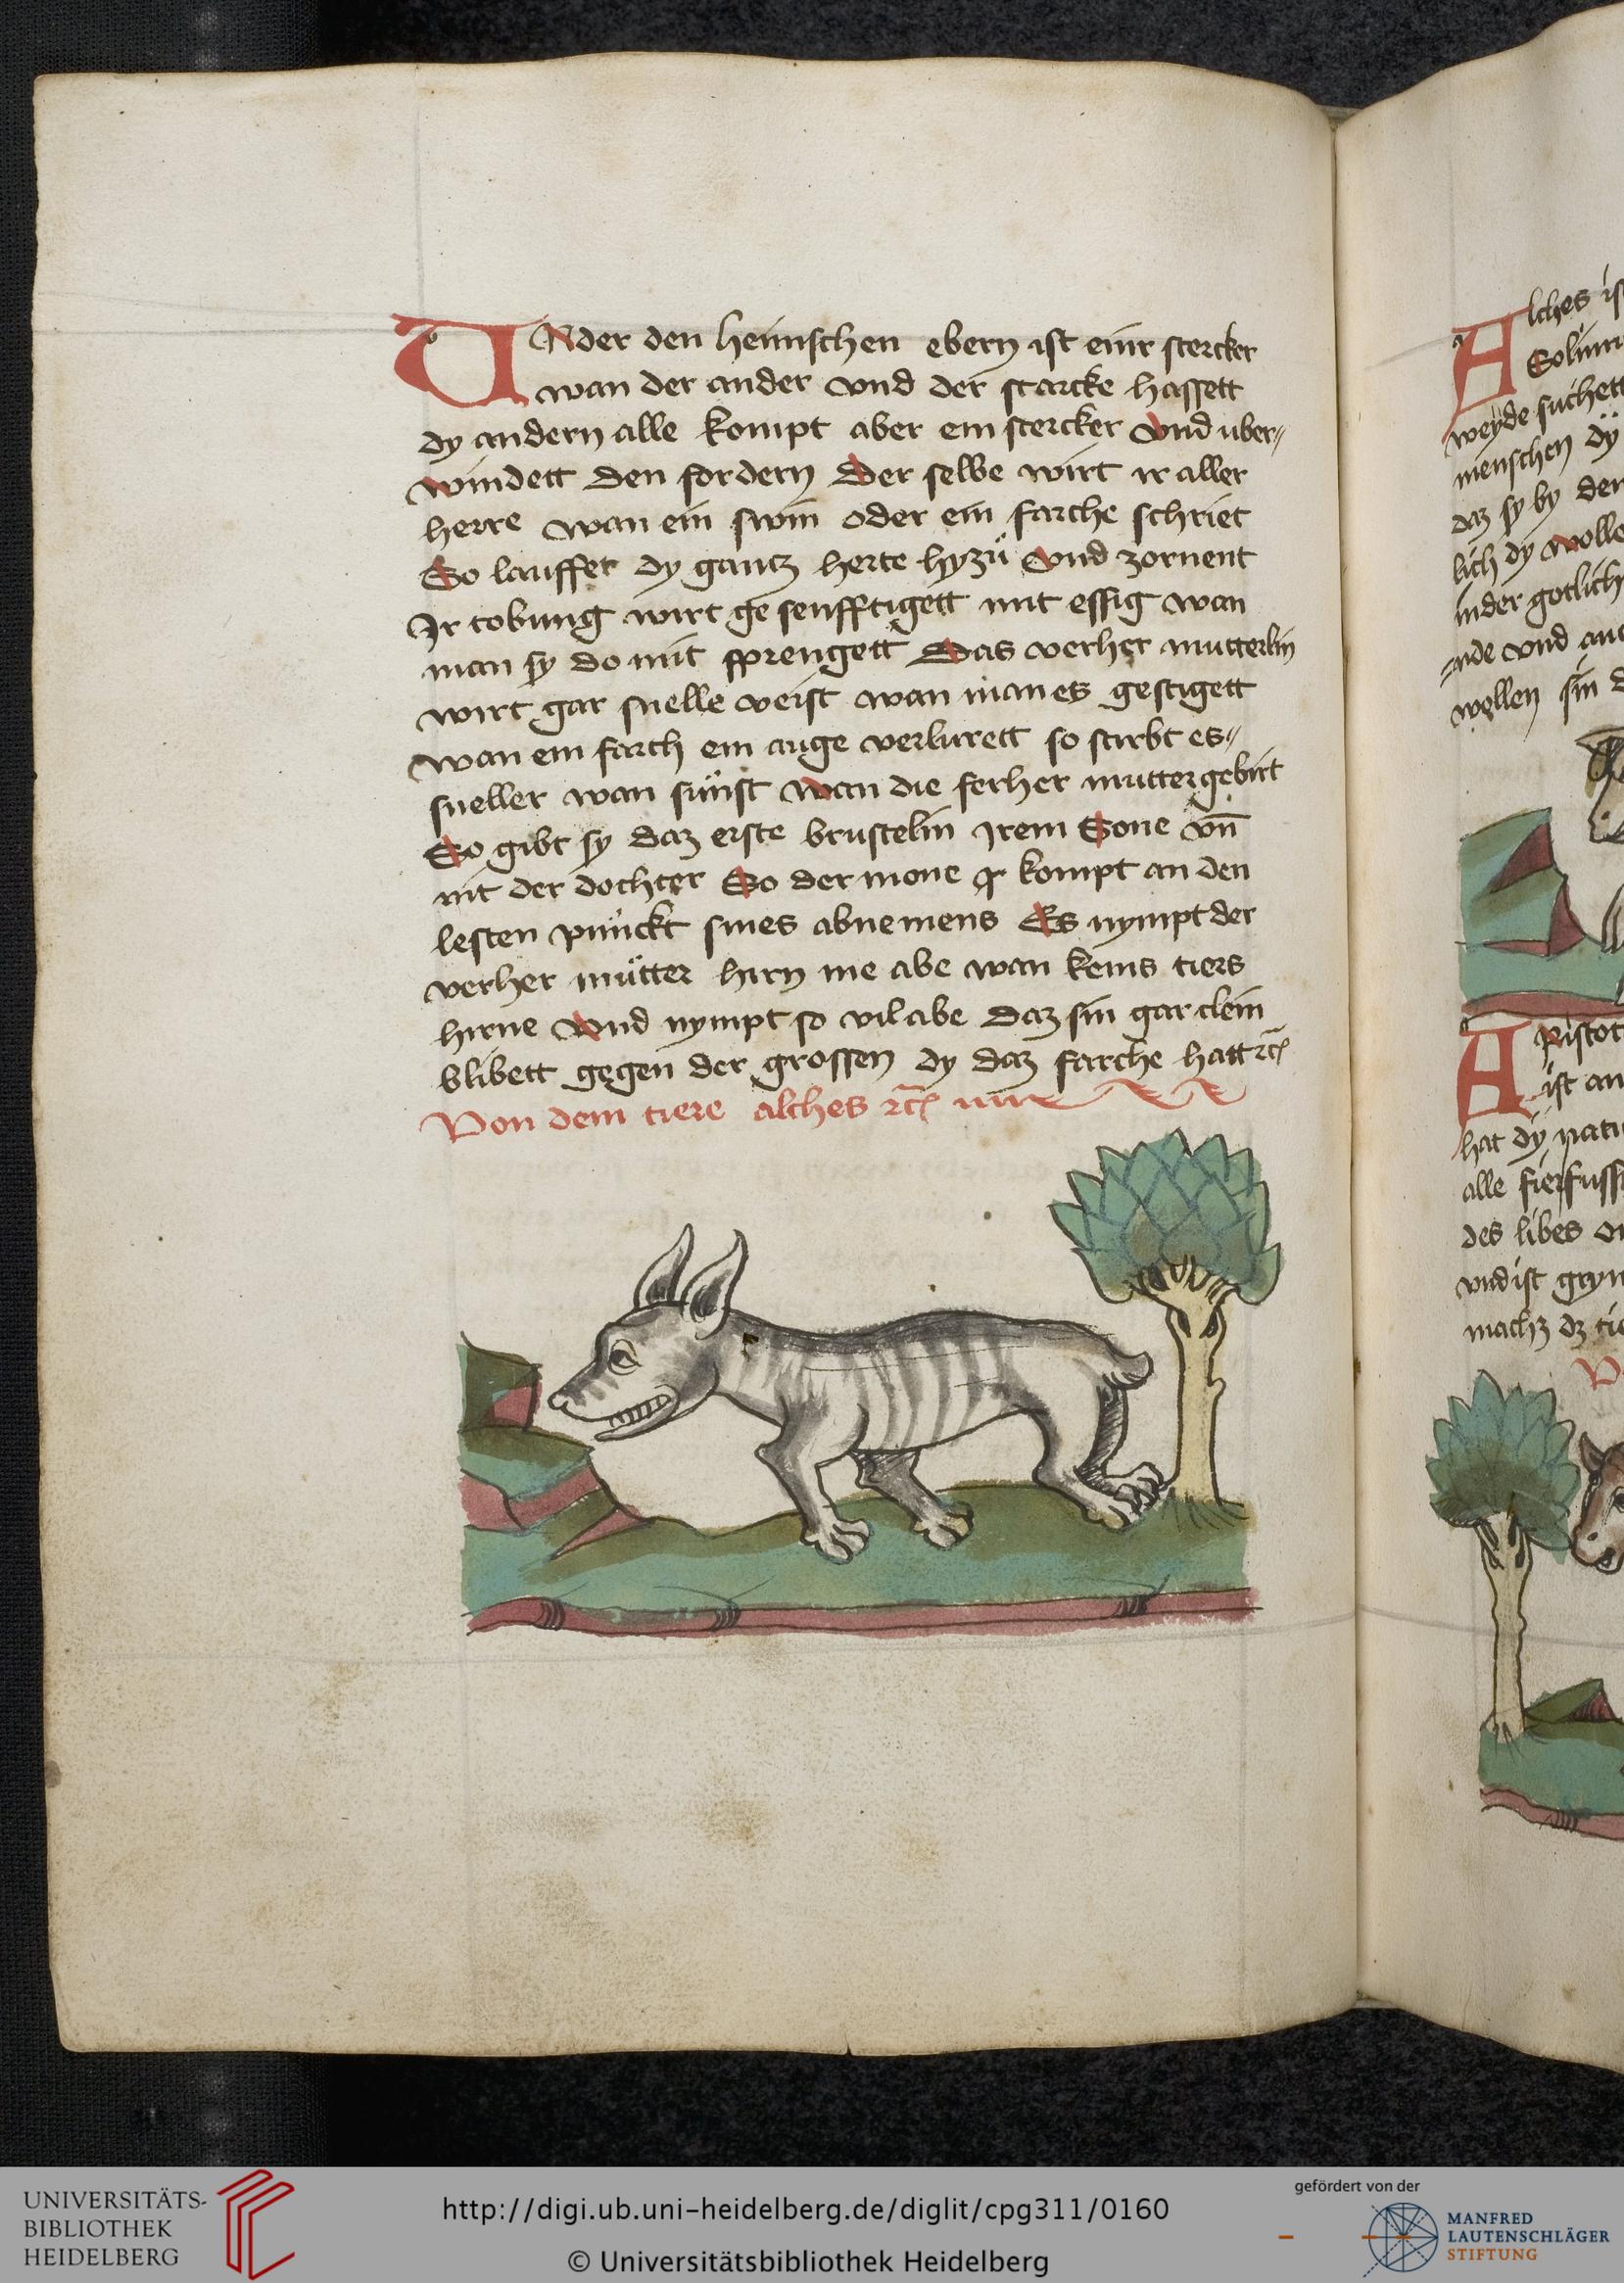 UNder den heimschen ebern ist einr stercker
wan der ander vnd der starcke hassett
dy andern alle kompt aber ein stercker vnd uber〃
windett den fordern Der selbe wirt ir aller
herre wan ein swin oder ein farche schriet
So lauffet dy gantz herte hyzů vnd zornent
Ir tobung wirt ge senfftigett mit essig wan
man sy do mit sprengett Das verher mutterlin
wirt gar snelle veist wan man es gestigett
wan ein farch ein auge verlurett so stirbt es〃
sneller wan sünst wan die ferher mutter gebirt
So gibt sy daz erste brustelin Irem Sone vn̄
nit der dochter So der mone kompt an den
lesten pünckt sines abnemens Es nympt der
verher můtter hirn me abe wan keins tiers
hirne vnd nympt so vil abe daz sin gar clein
blibett gegen der grossen dy daz farche hatt ꝛc
Von dem tiere alches ꝛc
lches
Solin
weyde suchett
menschen dÿ
daz sy by den
lich dy wolle
in der gotlich
vnd
wellen sin
A
ist an
hat dÿ natu
alle fierfuss
des libes
vnd ist
machz dz tie
UNIVERSITÄTS-
BIBLIOTHEK
HEIDELBERG
http://digi.ub.uni-heidelberg.de/diglit/cpg311/0160
© Universitätsbibliothek Heidelberg
gefördert von der
MANFRED
LAUTENSCHLÄGER
STIFTUNG